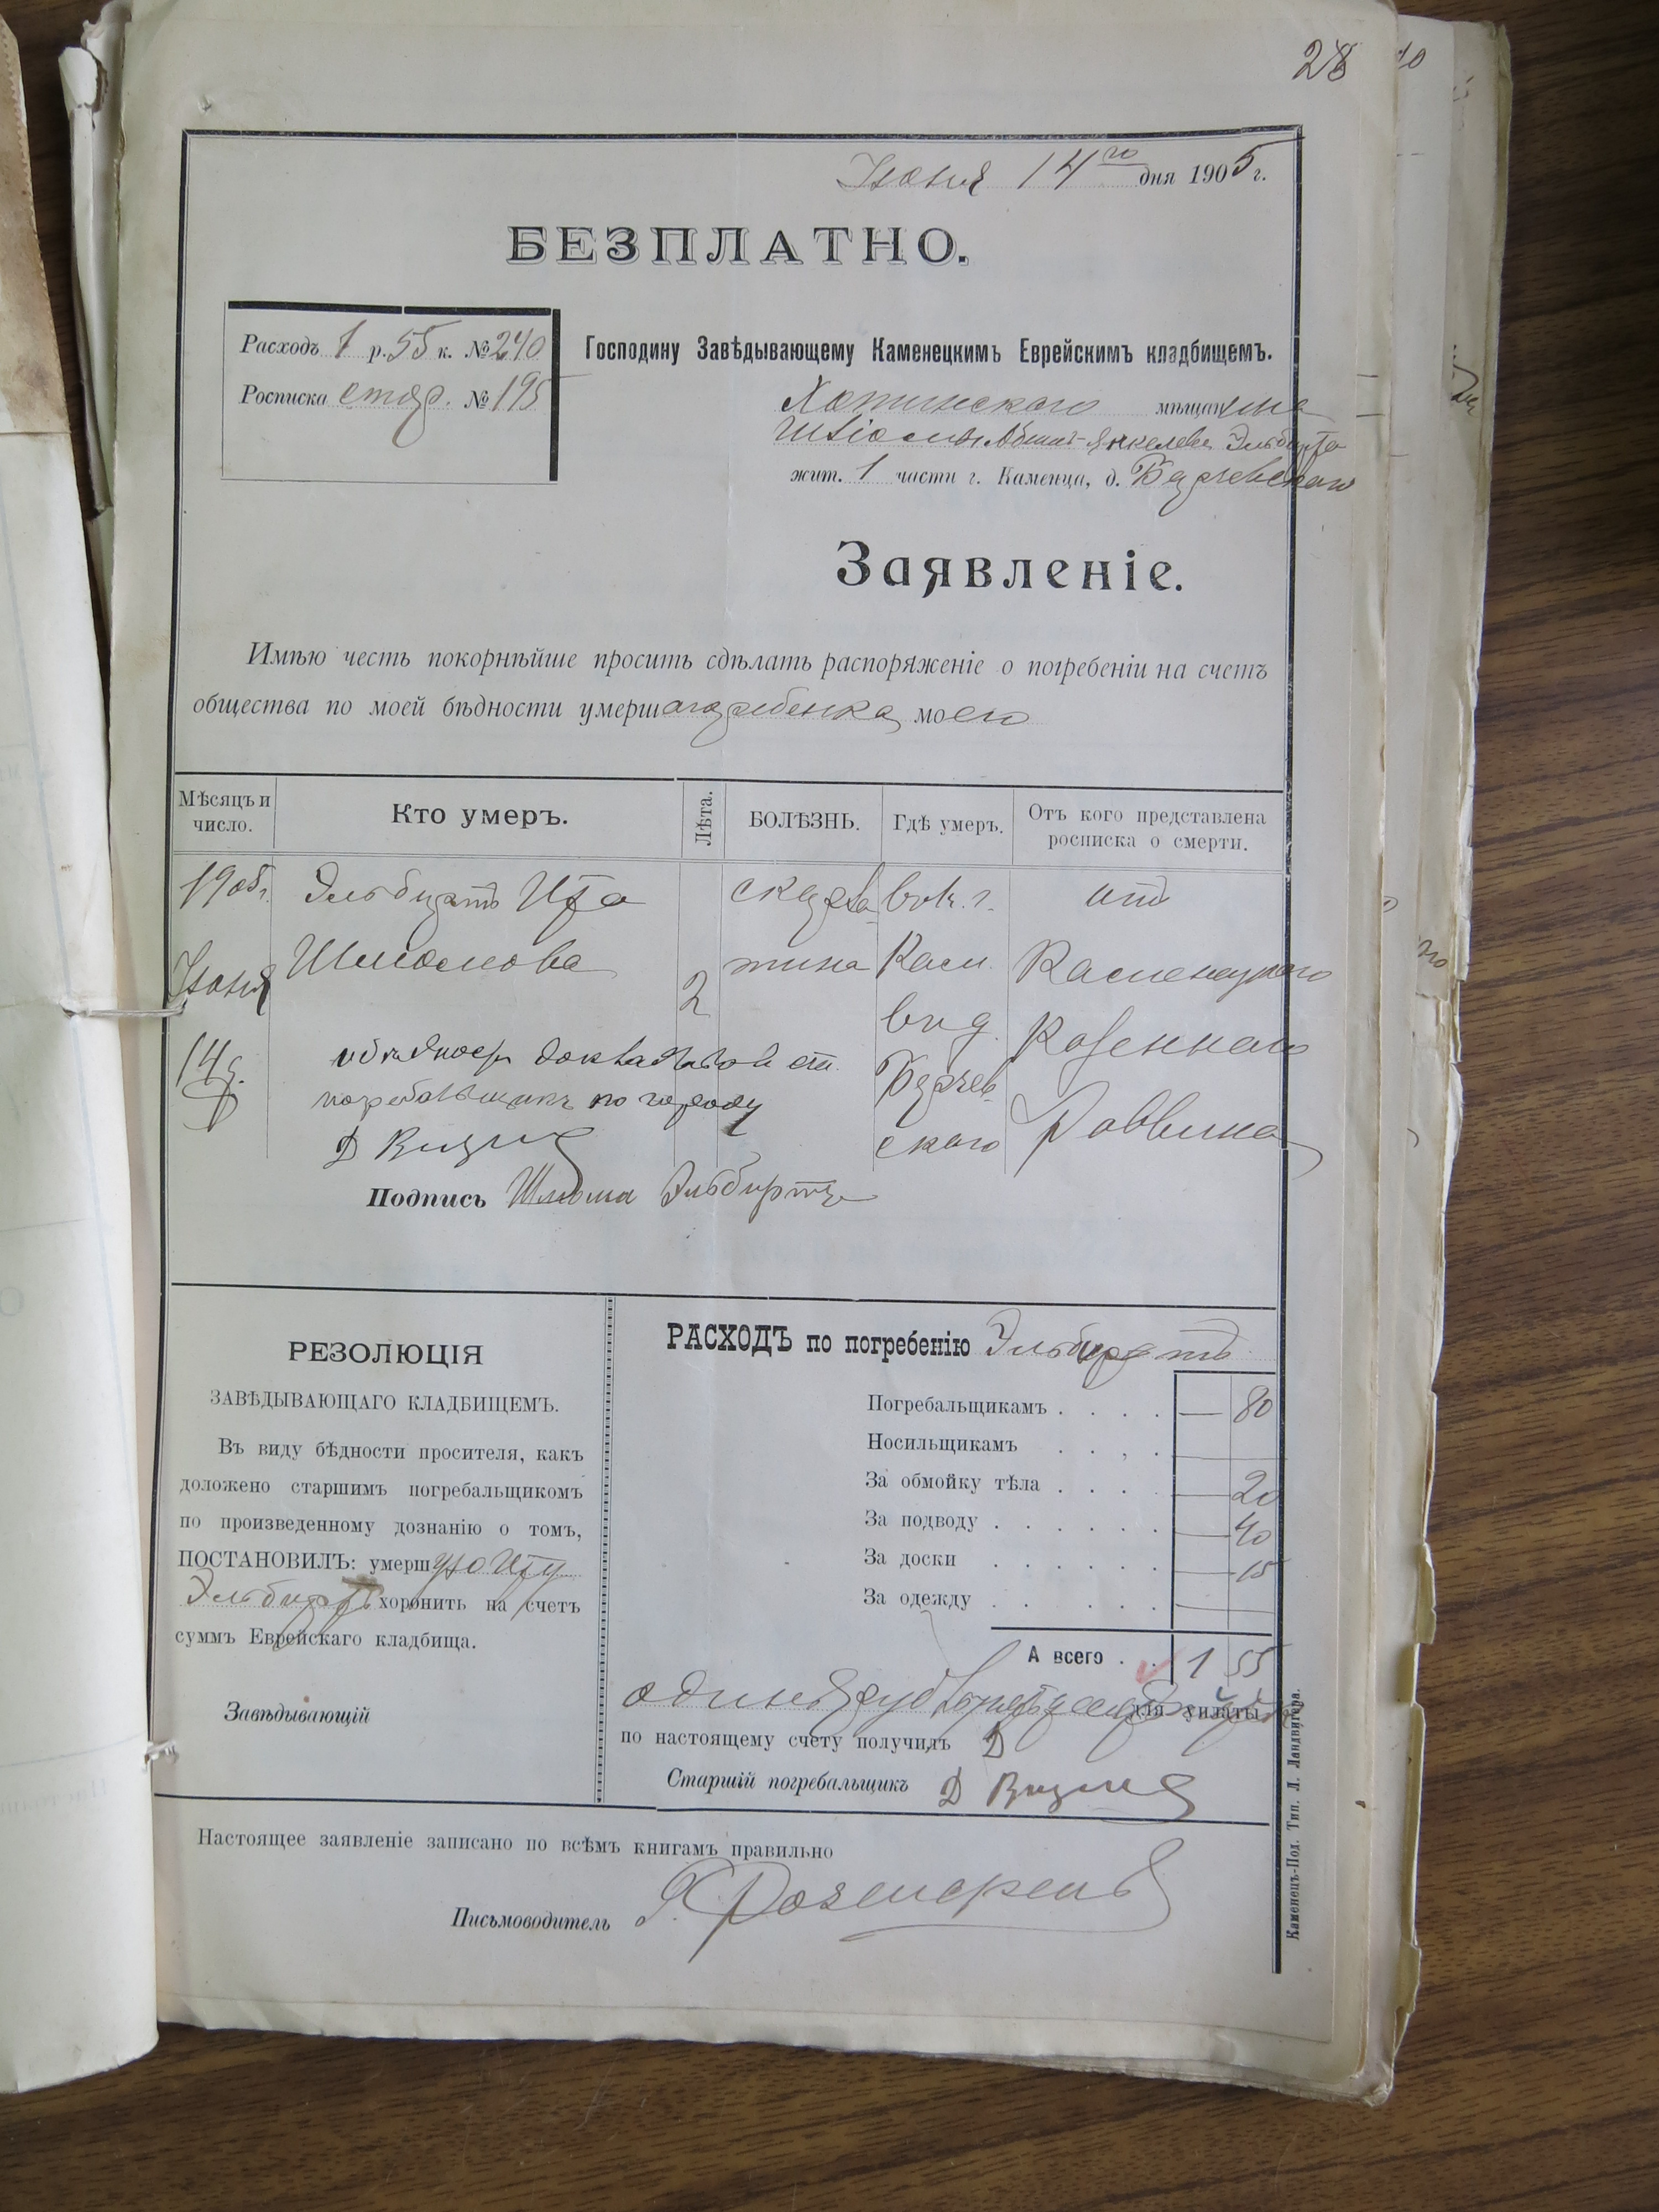 28
10
Іюня 14го дня 1905 г.
БЕЗПЛАТНО.
Расходъ 1 р. 55 к. № 240
Росписка стар. № 195
Господину Завѣдывающему Каменецкимъ Еврейскимъ кладбищемъ.
Хотинскаго мѣщанина
Шліомы Абрам-Янкелева Эльбирта
жит. 1 части г. Каменца, д.
Заявленіе.
Имѣю честь покорнѣйше просить сдѣлать распоряженіе о погребеніи на счетъ
общества по моей бѣдности умершаго ребенка моего
Мѣсяцъ и число.
Кто умеръ.
Лѣта.
БОЛѢЗНЬ.
Гдѣ умеръ.
Отъ кого представлена росписка о смерти.
1905 г.
Іюня
14 д.
Эльбиртъ Ита
Шліомова
2
скарла-
тина
въ г.
Кам.
въ д.
скаго
отъ
Каменецкаго
Казеннаго
Раввина
по городу
Подпись Шлёма Эльбиртъ
РЕЗОЛЮЦІЯ
ЗАВѢДЫВАЮЩАГО КЛАДБИЩЕМЪ.
Въ виду бѣдности просителя, какъ
доложено старшимъ погребальщикомъ
по произведенному дознанію о томъ,
ПОСТАНОВИЛЪ: умершую Иту
Эльбиртъ хоронить на счетъ
суммъ Еврейскаго кладбища.
Завѣдывающій
РАСХОДЪ по погребенію Эльбиртъ
Погребальщикамъ . . . . — 80
Носильщикамъ . . . . —
За обмойку тѣла . . . . — 20
За подводу . . . . . . — 40
За доски . . . . . . — 15
За одежду . . . . . . —
А всего . . 1 55
одинъ руб для уплаты
по настоящему счету получилъ Д
Старшій погребальщикъ Д
Настоящее заявленіе записано по всѣмъ книгамъ правильно
Письмоводитель
Каменецъ-Под. Тип. Л. Ландвигера.